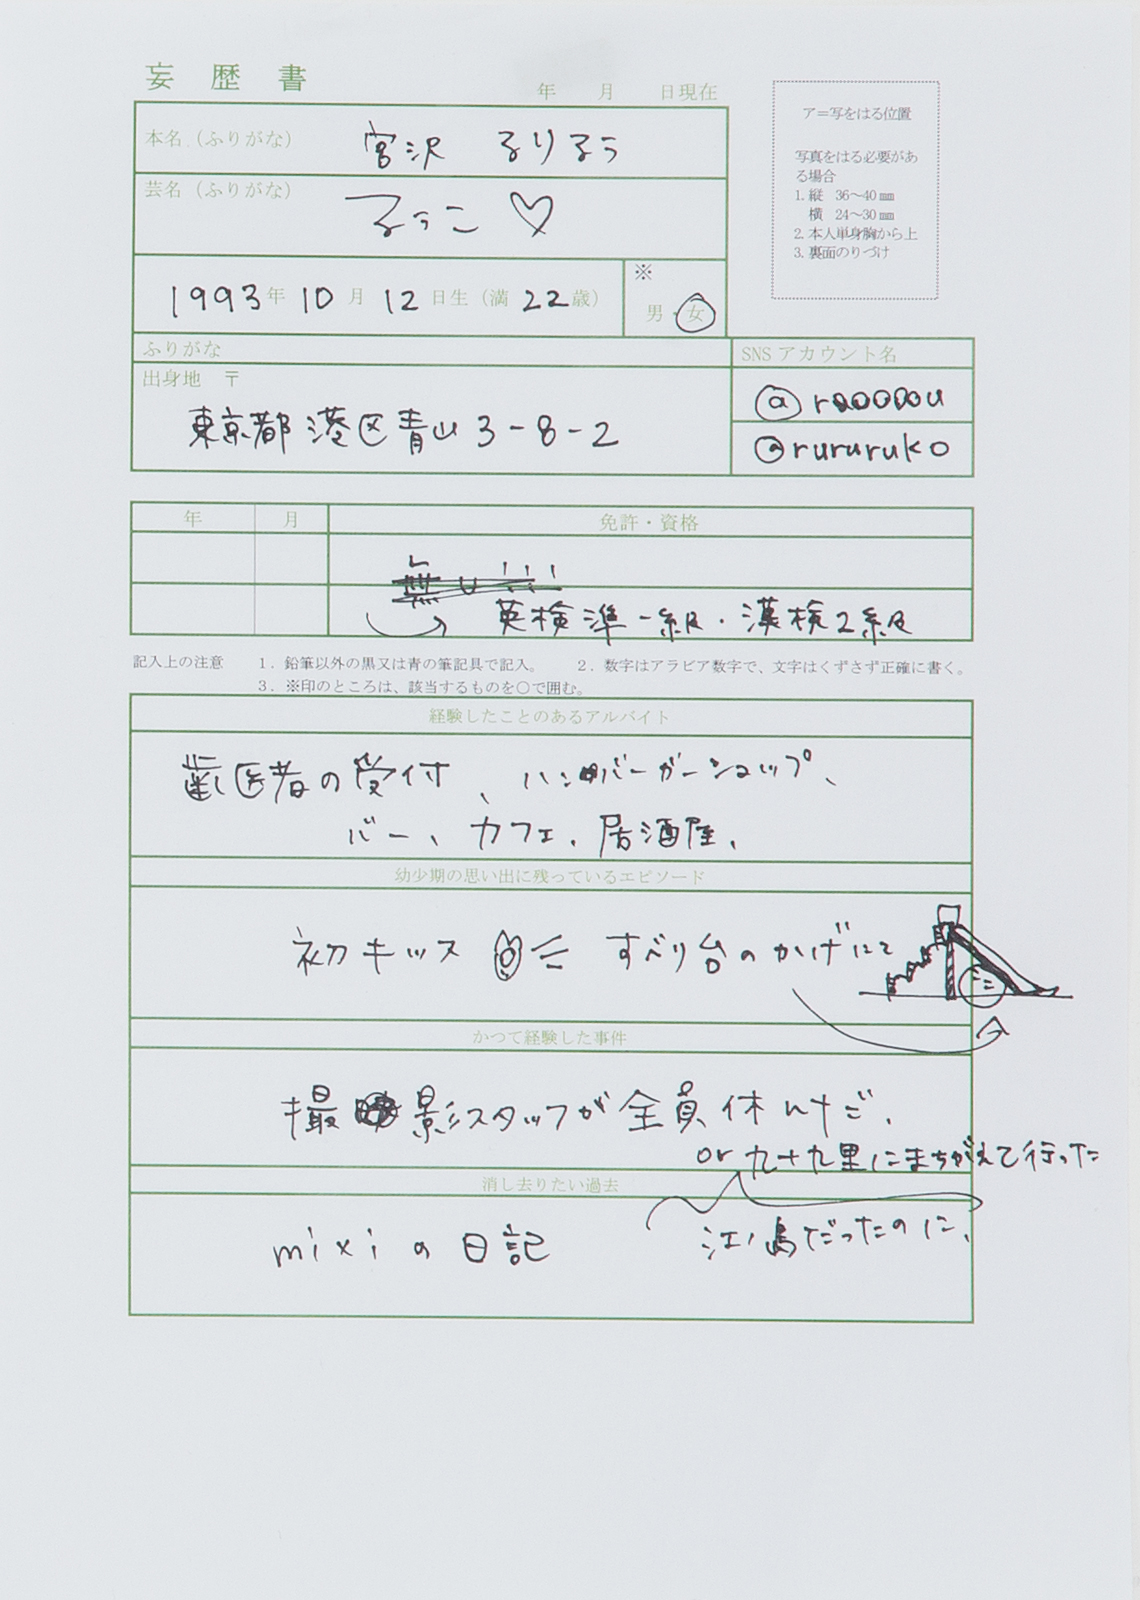 妄歴書
年 月 日現在
ア=写をはる位置
写真をはる必要があ
る場合
1. 縦 36〜40㎜
横 24〜30㎜
2. 本人単身胸から上
3. 裏面のりづけ
本名（ふりがな） 宮沢 るりるぅ
芸名（ふりがな） るぅこ♡
1993年10月12日生（満22歳）
※
男・女
ふりがな
出身地 〒
東京都港区青山3-8-2
SNSアカウント名
@raoooou
@rururuko
年 月 免許・資格
無し!!!
英検準一級・漢検2級
記入上の注意 1．鉛筆以外の黒又は青の筆記具で記入。 2．数字はアラビア数字で、文字はくずさず正確に書く。
3．※印のところは、該当するものを○で囲む。
経験したことのあるアルバイト
歯医者の受付、ハンバーガーショップ、
バー、カフェ、居酒屋、
幼少期の思い出に残っているエピソード
初キッス すべり台のかげにて
かつて経験した事件
撮影スタッフが全員休んだ、
or 九十九里にまちがえて行った
消し去りたい過去
江ノ島だったのに、
mixiの日記